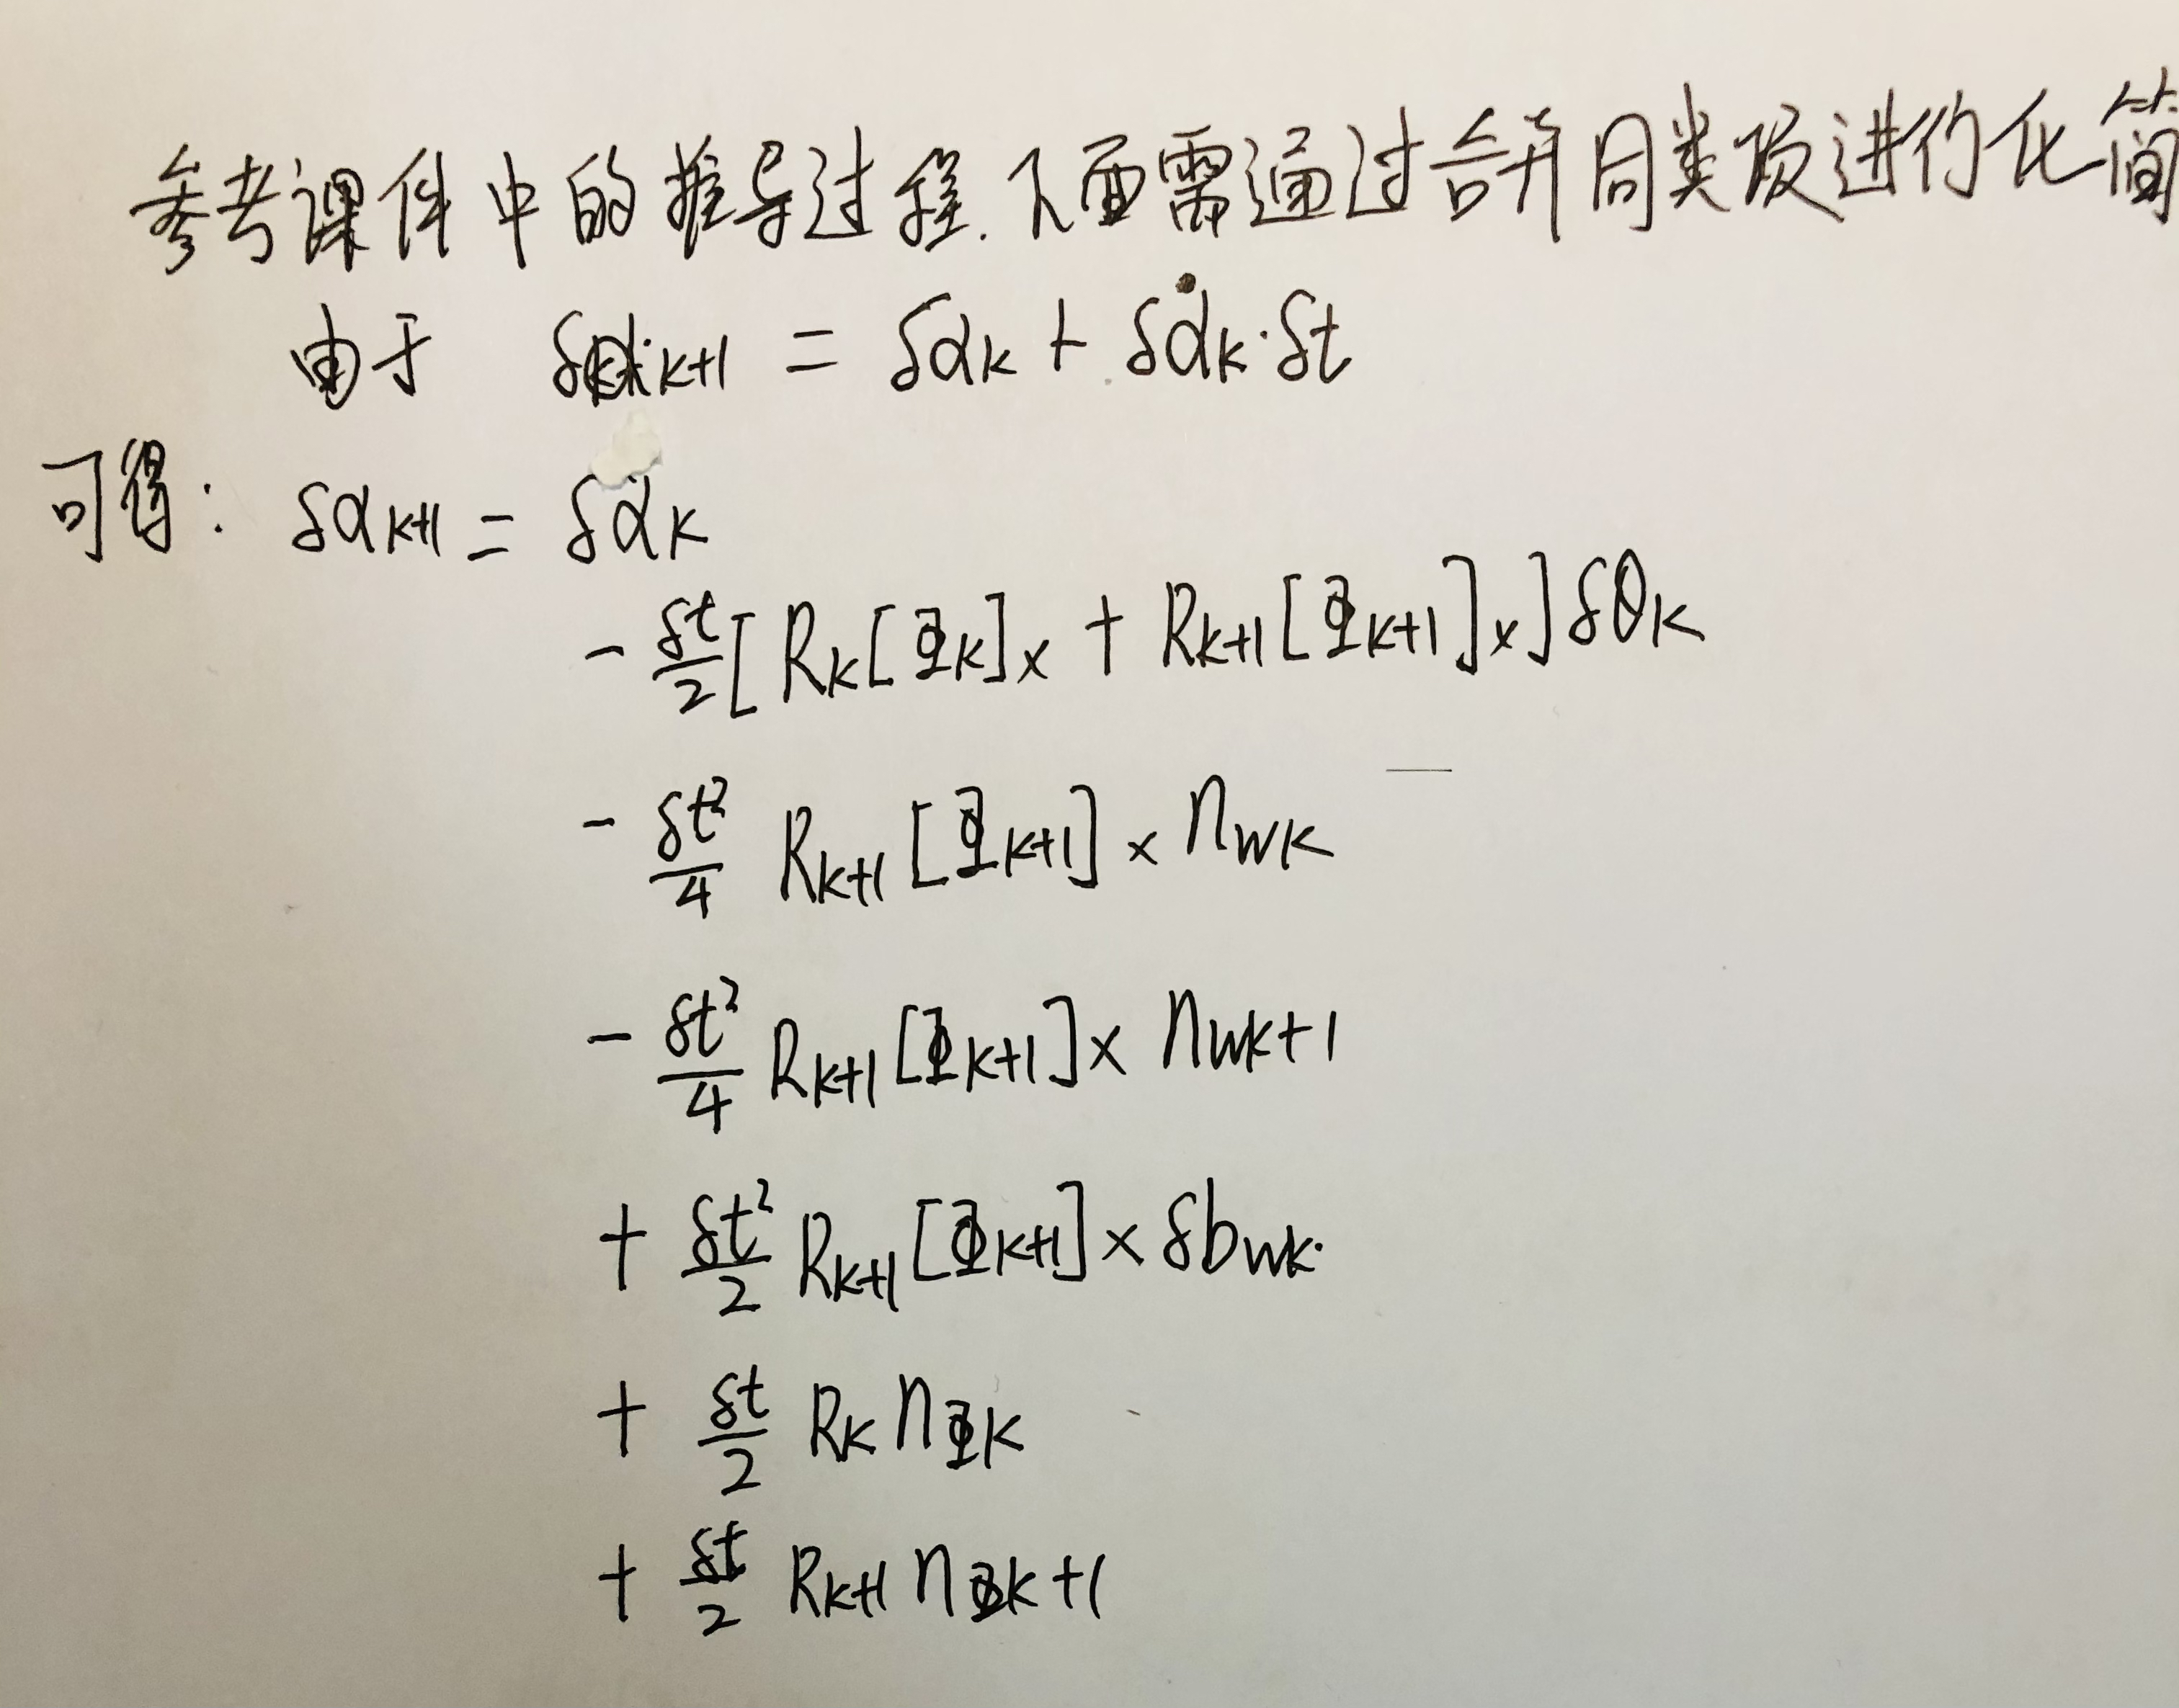 参考课件中的推导过程.下面需通过合并同类项进行化简
由于 δα_{k+1} = δα_k + δα̇_k·δt
可得: δα_{k+1} = δα_k
- δt/2 [R_k[Φ_k]_× + R_{k+1}[Φ_{k+1}]_×]δθ_k
- δt²/4 R_{k+1}[Φ_{k+1}]× n_{wk}
- δt²/4 R_{k+1}[Φ_{k+1}]× n_{wk+1}
+ δt²/2 R_{k+1}[Φ_{k+1}]× δb_{wk}.
+ δt/2 R_k n_{Φk}
+ δt/2 R_{k+1} n_{Φk+1}